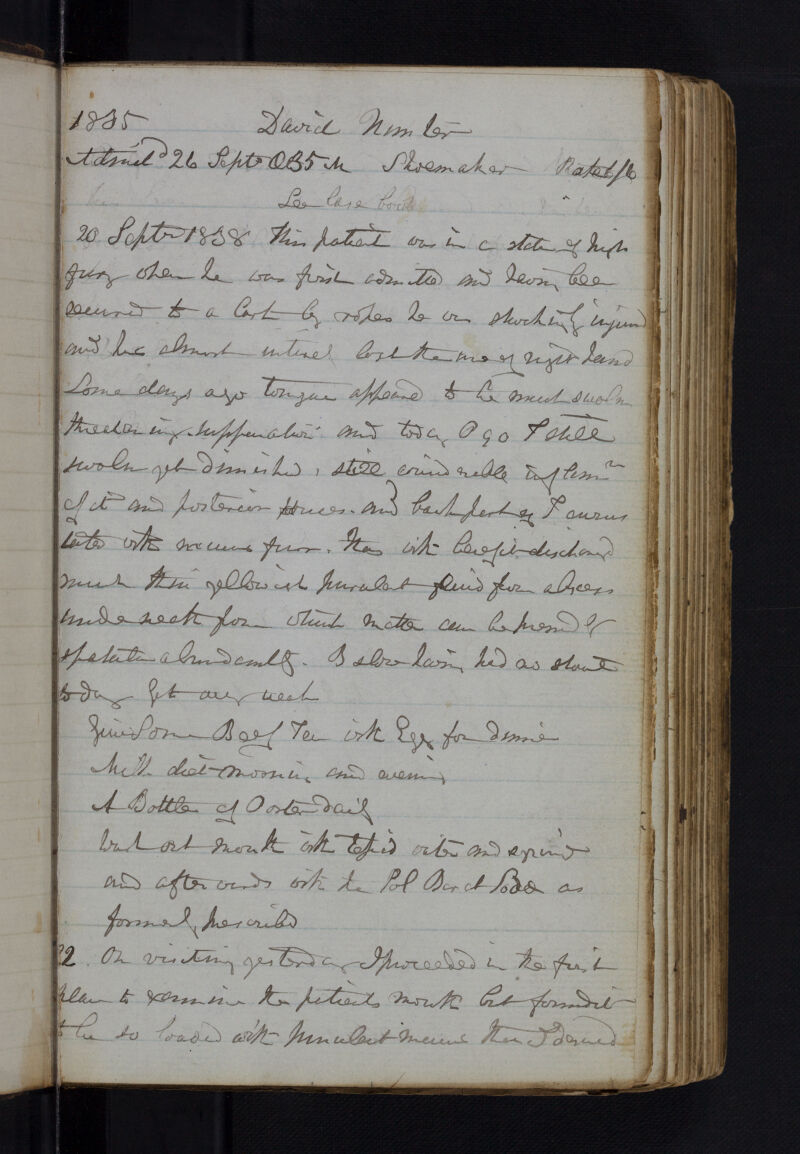 1835 David
Admitd 26 Septr 1835 M Shoemaker
See Case book
20 Septr 1838 This patient was in a state of high
fury when he was first admitted and having been
secured to a Cart by ropes he was shockingly injured
and has almost entirely lost the use of right hand
Some days ago tongue appeared to be much swoln
threatening suppuration and today P 90 T still
swoln yet diminished, still considerable
of it and posterior fauces and back part of T
with mucus furr. Has with benefit discharged
much thin yellowish purulent fluid from abscess
underneath from which matter can be pressed by
spatula abundantly. B slow having had no stool
today yet very weak
Give Some Beef Tea with Eggs for dinner
Milk diet morning and evening
A Bottle of Porter daily
Wash out mouth with tepid water and syringe
and afterwards with the Sol as
formerly prescribed
22. On visiting yesterday I proceeded in the first
place to examine the patients mouth but found it
to be so loaded with purulent mucus that I desired